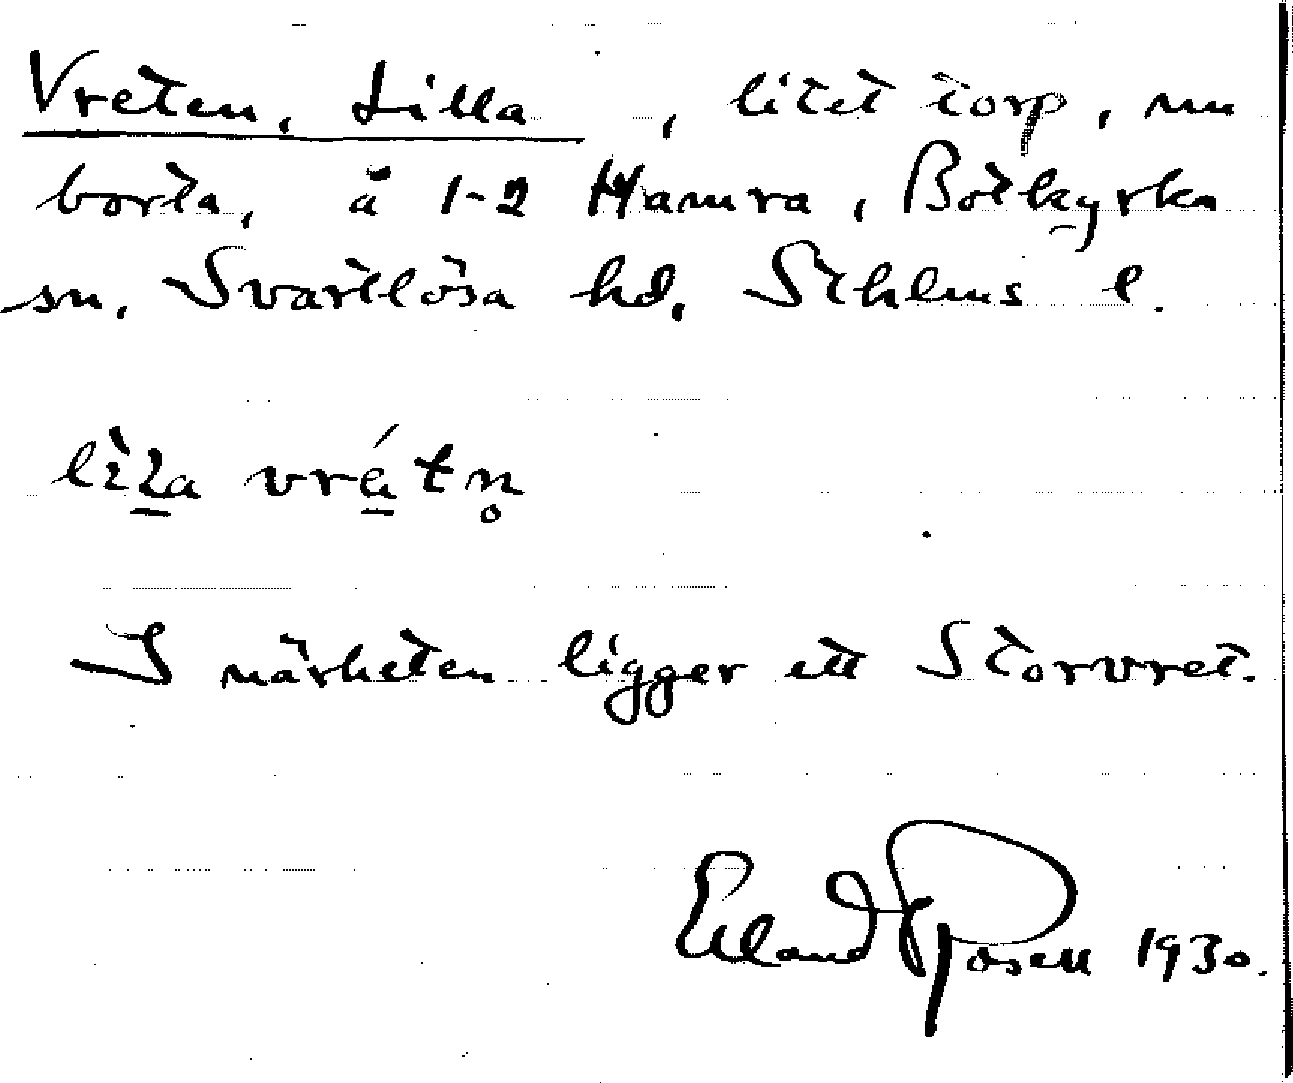 Vreten, Lilla, litet torp, nu
borta, å 1-2 Hamra, Botkyrka
sn. Svartlösa hd, Sthlms l.
vrátn̥
I närheten ligger ett Storvret.
Erland Rosell 1930.